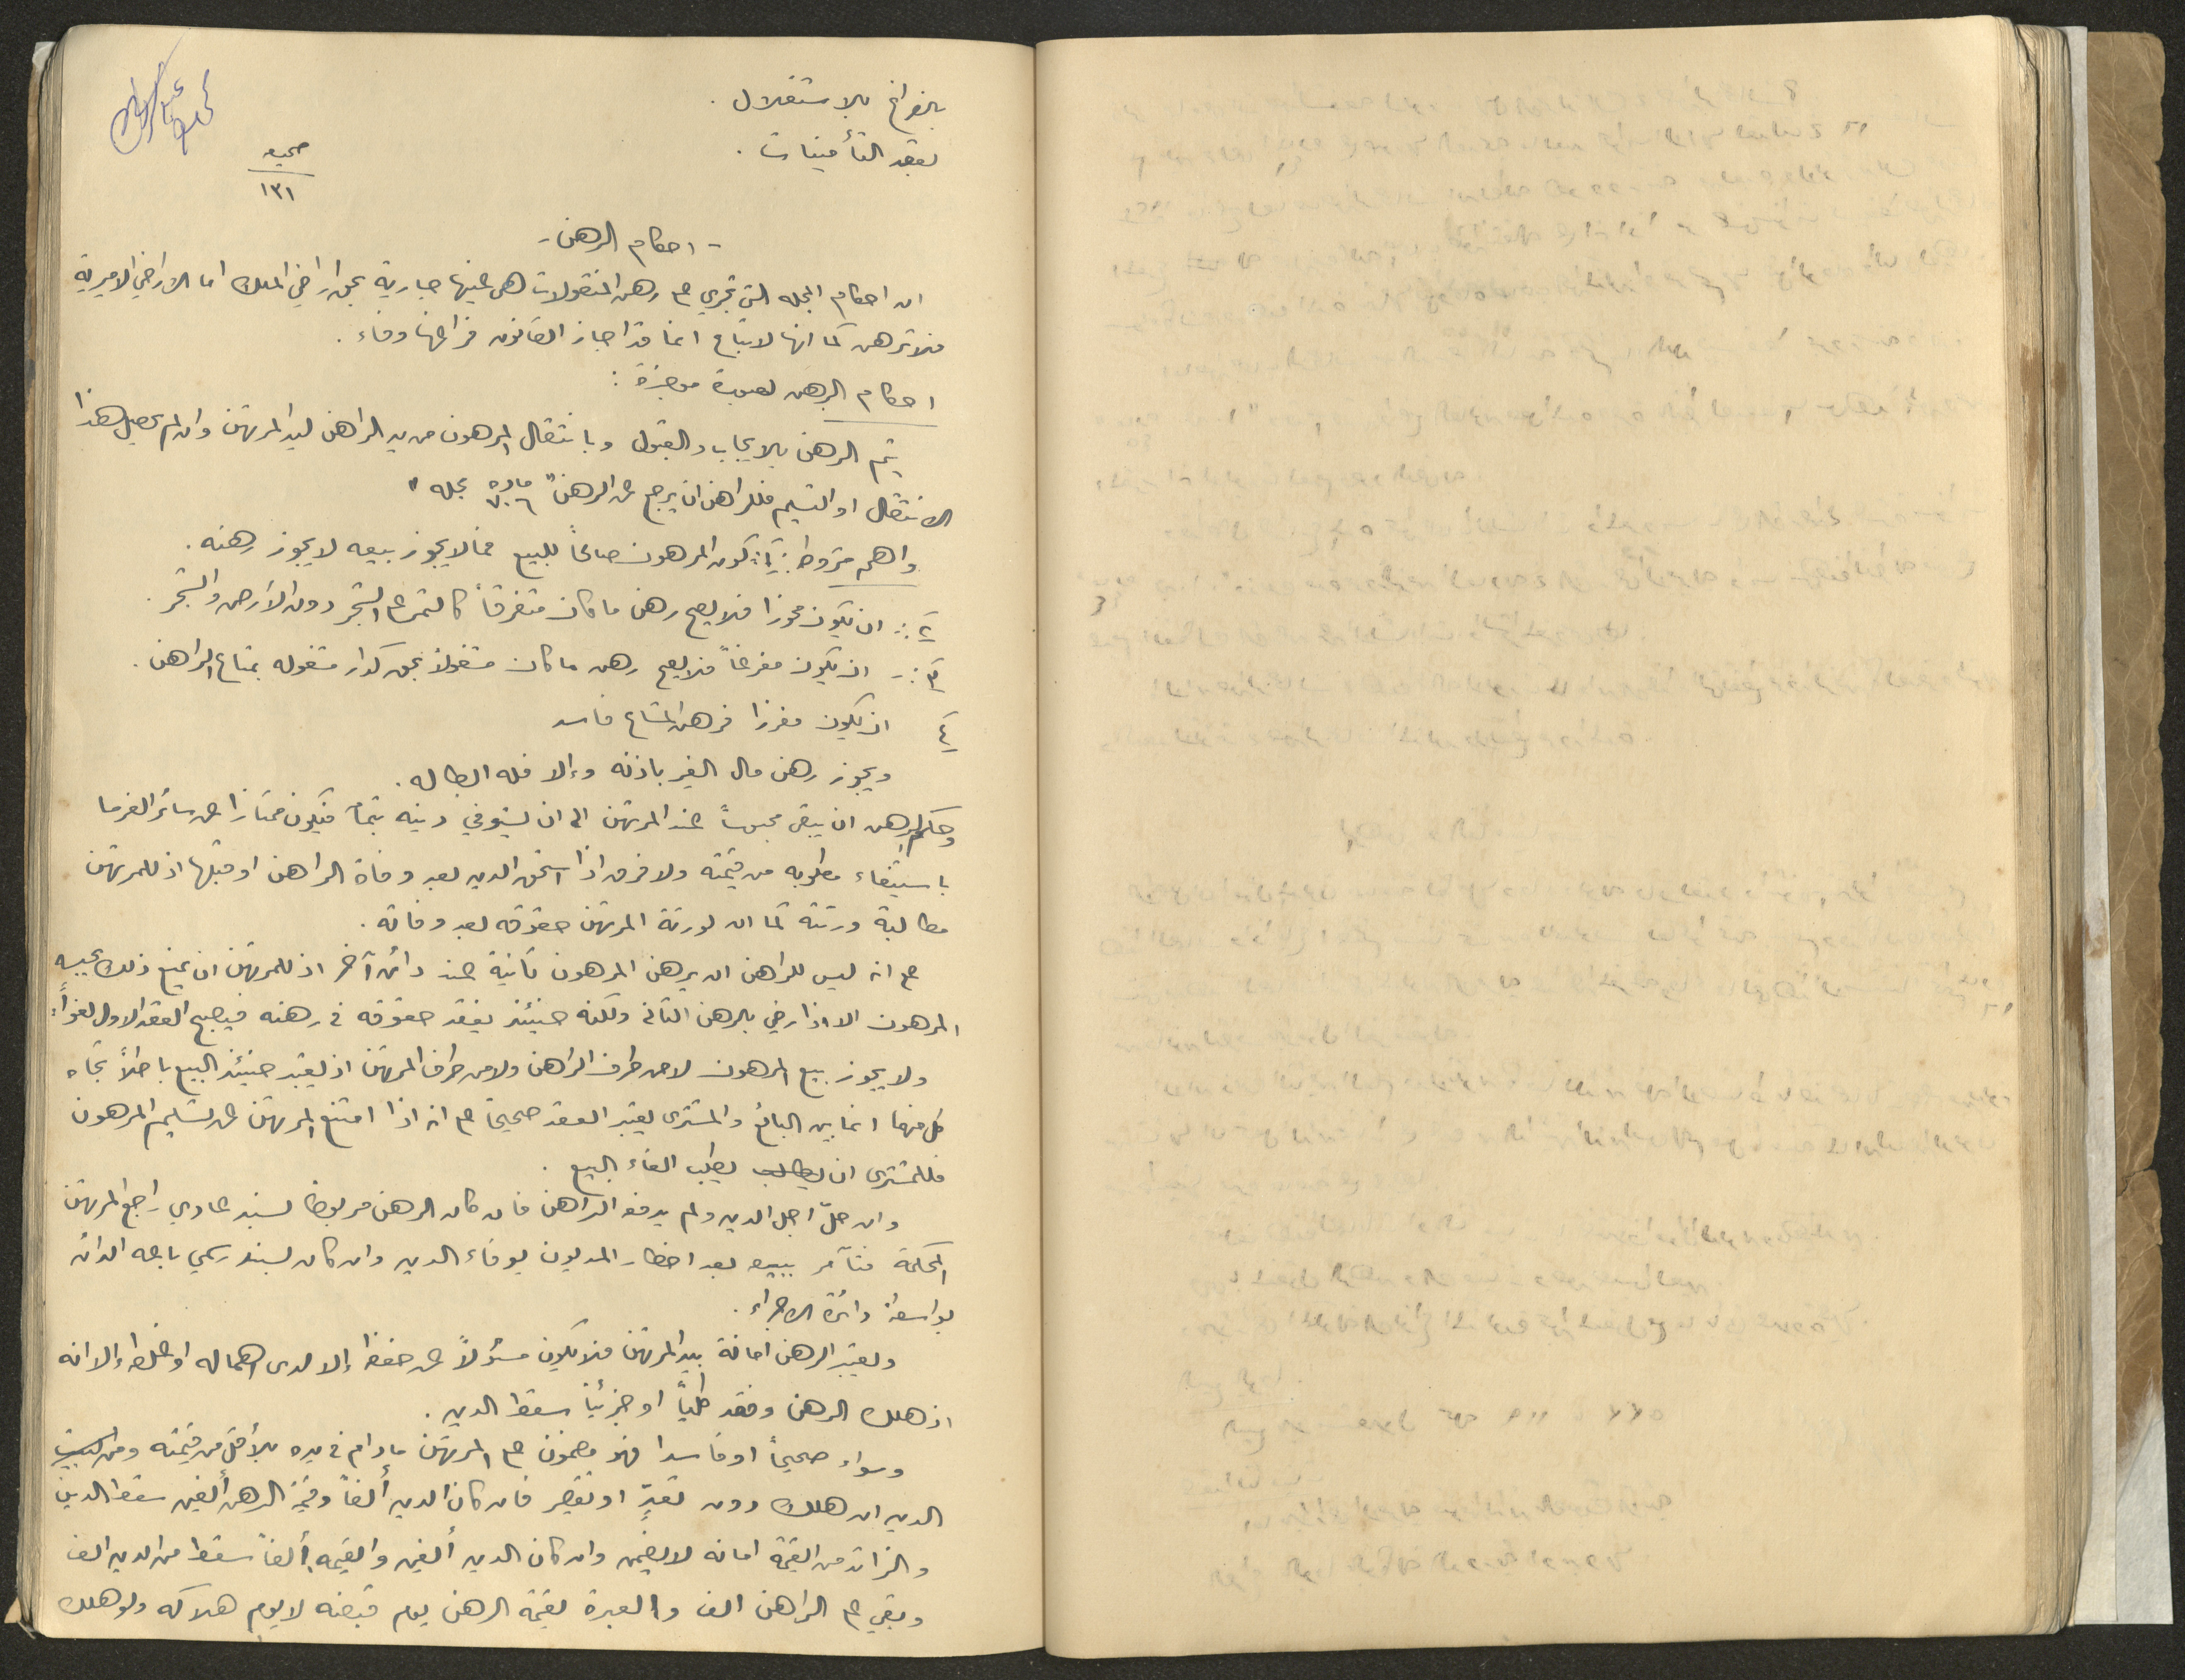 بالفراغ بالاستغلال .
بعقد التأمينات .
صحيفه
١٣١
- احكام الرهن -
ان احكام المجله التي تجري على رهن المنقولات هي عينها جارية بحق اراضي الملك اما الاراضي الاميرية
فلا ترهن كما انها لا تباع انما قد اجاز القانون فراغها وفاء .
احكام الرهن بصورة موجزة :
يتم الرهن بالايجاب والقبول وبانتقال المرهون من يد الراهن ليد المرتهن وان لم يحصل هذا
الانتقال او التسليم فللراهن ان يرجع عن الرهن " ماده ٧٠٦ مجله "
واهم شروطه : ١ً : كون المرهون صالحاً للبيع فما لا يجوز بيعه لا يجوز رهنه .
٢ً : ان يكون محوزا فلا يصح رهن ما كان متفرقاً كالثمر على الشجر دون الارض والشجر .
٣ً :- ان يكون مفرغاً فلا يصح رهن ما كان مشغولاً بحق كدار مشغوله بمتاع الراهن .
٤ً ان يكون مفرزا فرهن المشاع فاسد
ويجوز رهن مال الغير باذنه وإلا فله ابطاله .
وحكم الرهن ان يبقى محبوساً عند المرتهن الى ان يستوفي دينه فيكون ممتازا عن سائر الغرما
باستيفاء مطلوبه من قيمته ولا فرق اذا استحق الدين بعد وفاة الراهن او قبلها اذ للمرتهن
مطالبة ورثته كما ان لورثة المرتهن حقوقه بعد وفاته .
على انه ليس للراهن ان يرهن المرهون ثانية عند دائن آخر اذ للمرتهن ان يمنع ذلك بحبسه
المرهون الا اذا رضي بالرهن الثاني ولكنه حينئذ يفقد حقوقه في رهنه فيصبح العقد الاول لغواً .
ولا يجوز بيع المرهون لا من طرف الراهن ولا من طرف المرتهن اذ يعتبر حينئذ البيع باطلاً تجاه
كل منهما انما بين البائع والمشتري يعتبر العقد صحيحاً على انه اذا امتنع المرتهن عن تسليم المرهون
فللمشتري ان يطالب يطلب الغاء البيع .
وان حلّ اجل الدين ولم يدفع الراهن فان كان الرهن مربوطا بسند عادي راجع المرتهن
المحكمة فتأمر ببيعه بعد اخطار المديون بوفاء الدين وان كان بسند رسمي باعه الدائن
بواسطة دائرة الاجراء .
ويعتبر الرهن امانة بيد المرتهن فلا يكون مسئولاً عن حفظه إلا لدى اهماله او خطاه إلا انه
اذ هلك الرهن وفقد كلياً او جزئياً سقط الدين .
وسواء صحيحاً او فاسدا فهو مضمون على المرتهن ما دام في يده بالأقل من قيمته ومن
الدين ان هلك دون تعدٍّ او تقصير فان كان الدين ألفاً وقيمة الرهن ألفين سقط الدين
والزائد من القيمة امانه لا يضمن وان كان الدين ألفين والقيمه ألفاً سقط من الدين الف
وبقي على الراهن الف والعبرة بقيمة الرهن يوم قبضه لا يوم هلاكه ولو هلك